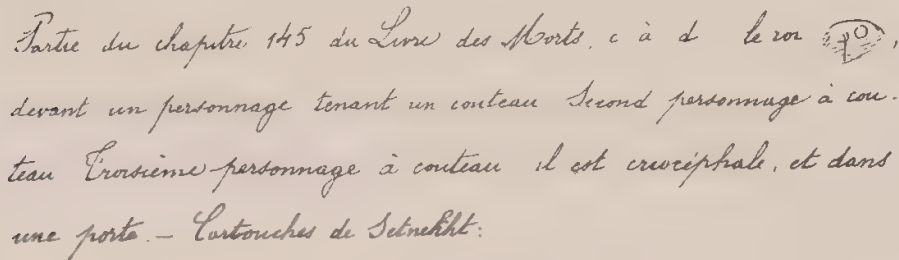 Partie du chapitre 145 du Livre des Morts, c à d le roi ,
devant un personnage tenant un couteau Second personnage à cou-
teau Troisième personnage à couteau il est criocéphale, et dans
une porte. — Cartouches de Setnekht: